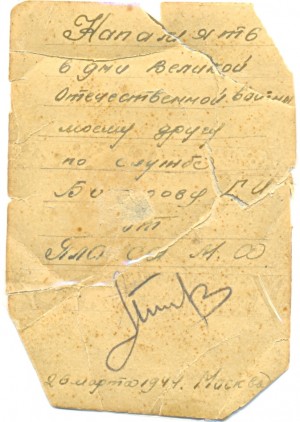 На память
в дни Великой
Отечественной войны
моему другу
по службе
Г И
от
М. Ф
26 марта 1944. Москва